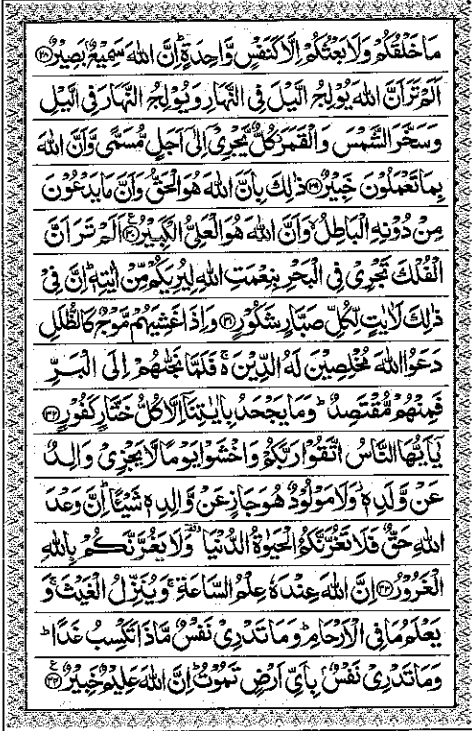 مَا خَلْقُكُمْ وَلَا بَعْثُكُمْ إِلَّا كَنَفْسٍ وَّاحِدَةٍ ؕ إِنَّ اللهَ سَمِيْعٌۢ بَصِيْرٌ ﴿۲۸﴾
اَلَمْ تَرَ اَنَّ اللهَ يُوْلِجُ الَّيْلَ فِى النَّهَارِ وَيُوْلِجُ النَّهَارَ فِى الَّيْلِ
وَسَخَّرَ الشَّمْسَ وَالْقَمَرَ كُلٌّ يَّجْرِىْٓ اِلٰٓى اَجَلٍ مُّسَمًّى وَّاَنَّ اللهَ
بِمَا تَعْمَلُوْنَ خَبِيْرٌ ﴿۲۹﴾ ذٰلِكَ بِاَنَّ اللهَ هُوَ الْحَقُّ وَاَنَّ مَا يَدْعُوْنَ
مِنْ دُوْنِهِ الْبَاطِلُ ۙ وَاَنَّ اللهَ هُوَ الْعَلِىُّ الْكَبِيْرُ ﴿۳۰﴾ ع اَلَمْ تَرَ اَنَّ
الْفُلْكَ تَجْرِىْ فِى الْبَحْرِ بِنِعْمَتِ اللهِ لِيُرِيَكُمْ مِّنْ اٰيٰتِهٖ ؕ اِنَّ فِىْ
ذٰلِكَ لَاٰيٰتٍ لِّكُلِّ صَبَّارٍ شَكُوْرٍ ﴿۳۱﴾ وَاِذَا غَشِيَهُمْ مَّوْجٌ كَالظُّلَلِ
دَعَوُا اللهَ مُخْلِصِيْنَ لَهُ الدِّيْنَ ۚ فَلَمَّا نَجّٰىهُمْ اِلَى الْبَرِّ
فَمِنْهُمْ مُّقْتَصِدٌ ؕ وَمَا يَجْحَدُ بِاٰيٰتِنَآ اِلَّا كُلُّ خَتَّارٍ كَفُوْرٍ ﴿۳۲﴾
يٰٓاَيُّهَا النَّاسُ اتَّقُوْا رَبَّكُمْ وَاخْشَوْا يَوْمًا لَّا يَجْزِىْ وَالِدٌ
عَنْ وَّلَدِهٖ ۫ وَلَا مَوْلُوْدٌ هُوَ جَازٍ عَنْ وَّالِدِهٖ شَيْـًٔا ؕ اِنَّ وَعْدَ
اللهِ حَقٌّ فَلَا تَغُرَّنَّكُمُ الْحَيٰوةُ الدُّنْيَا ۥ وَلَا يَغُرَّنَّكُمْ بِاللهِ
الْغَرُوْرُ ﴿۳۳﴾ اِنَّ اللهَ عِنْدَهٗ عِلْمُ السَّاعَةِ ۚ وَيُنَزِّلُ الْغَيْثَ ۚ وَ
يَعْلَمُ مَا فِى الْاَرْحَامِ ؕ وَمَا تَدْرِىْ نَفْسٌ مَّاذَا تَكْسِبُ غَدًا ؕ
وَمَا تَدْرِىْ نَفْسٌۢ بِاَىِّ اَرْضٍ تَمُوْتُ ؕ اِنَّ اللهَ عَلِيْمٌ خَبِيْرٌ ﴿۳۴﴾ ع